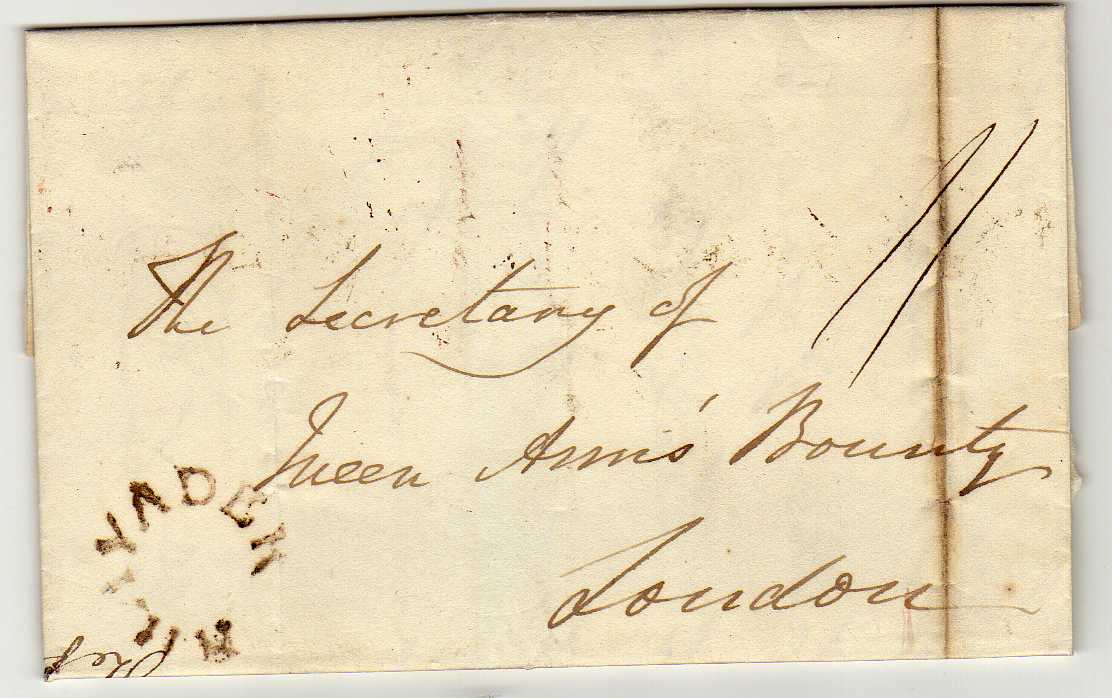 11
The Secretary of
Queen Ann's Bounty
London
RHAYADER